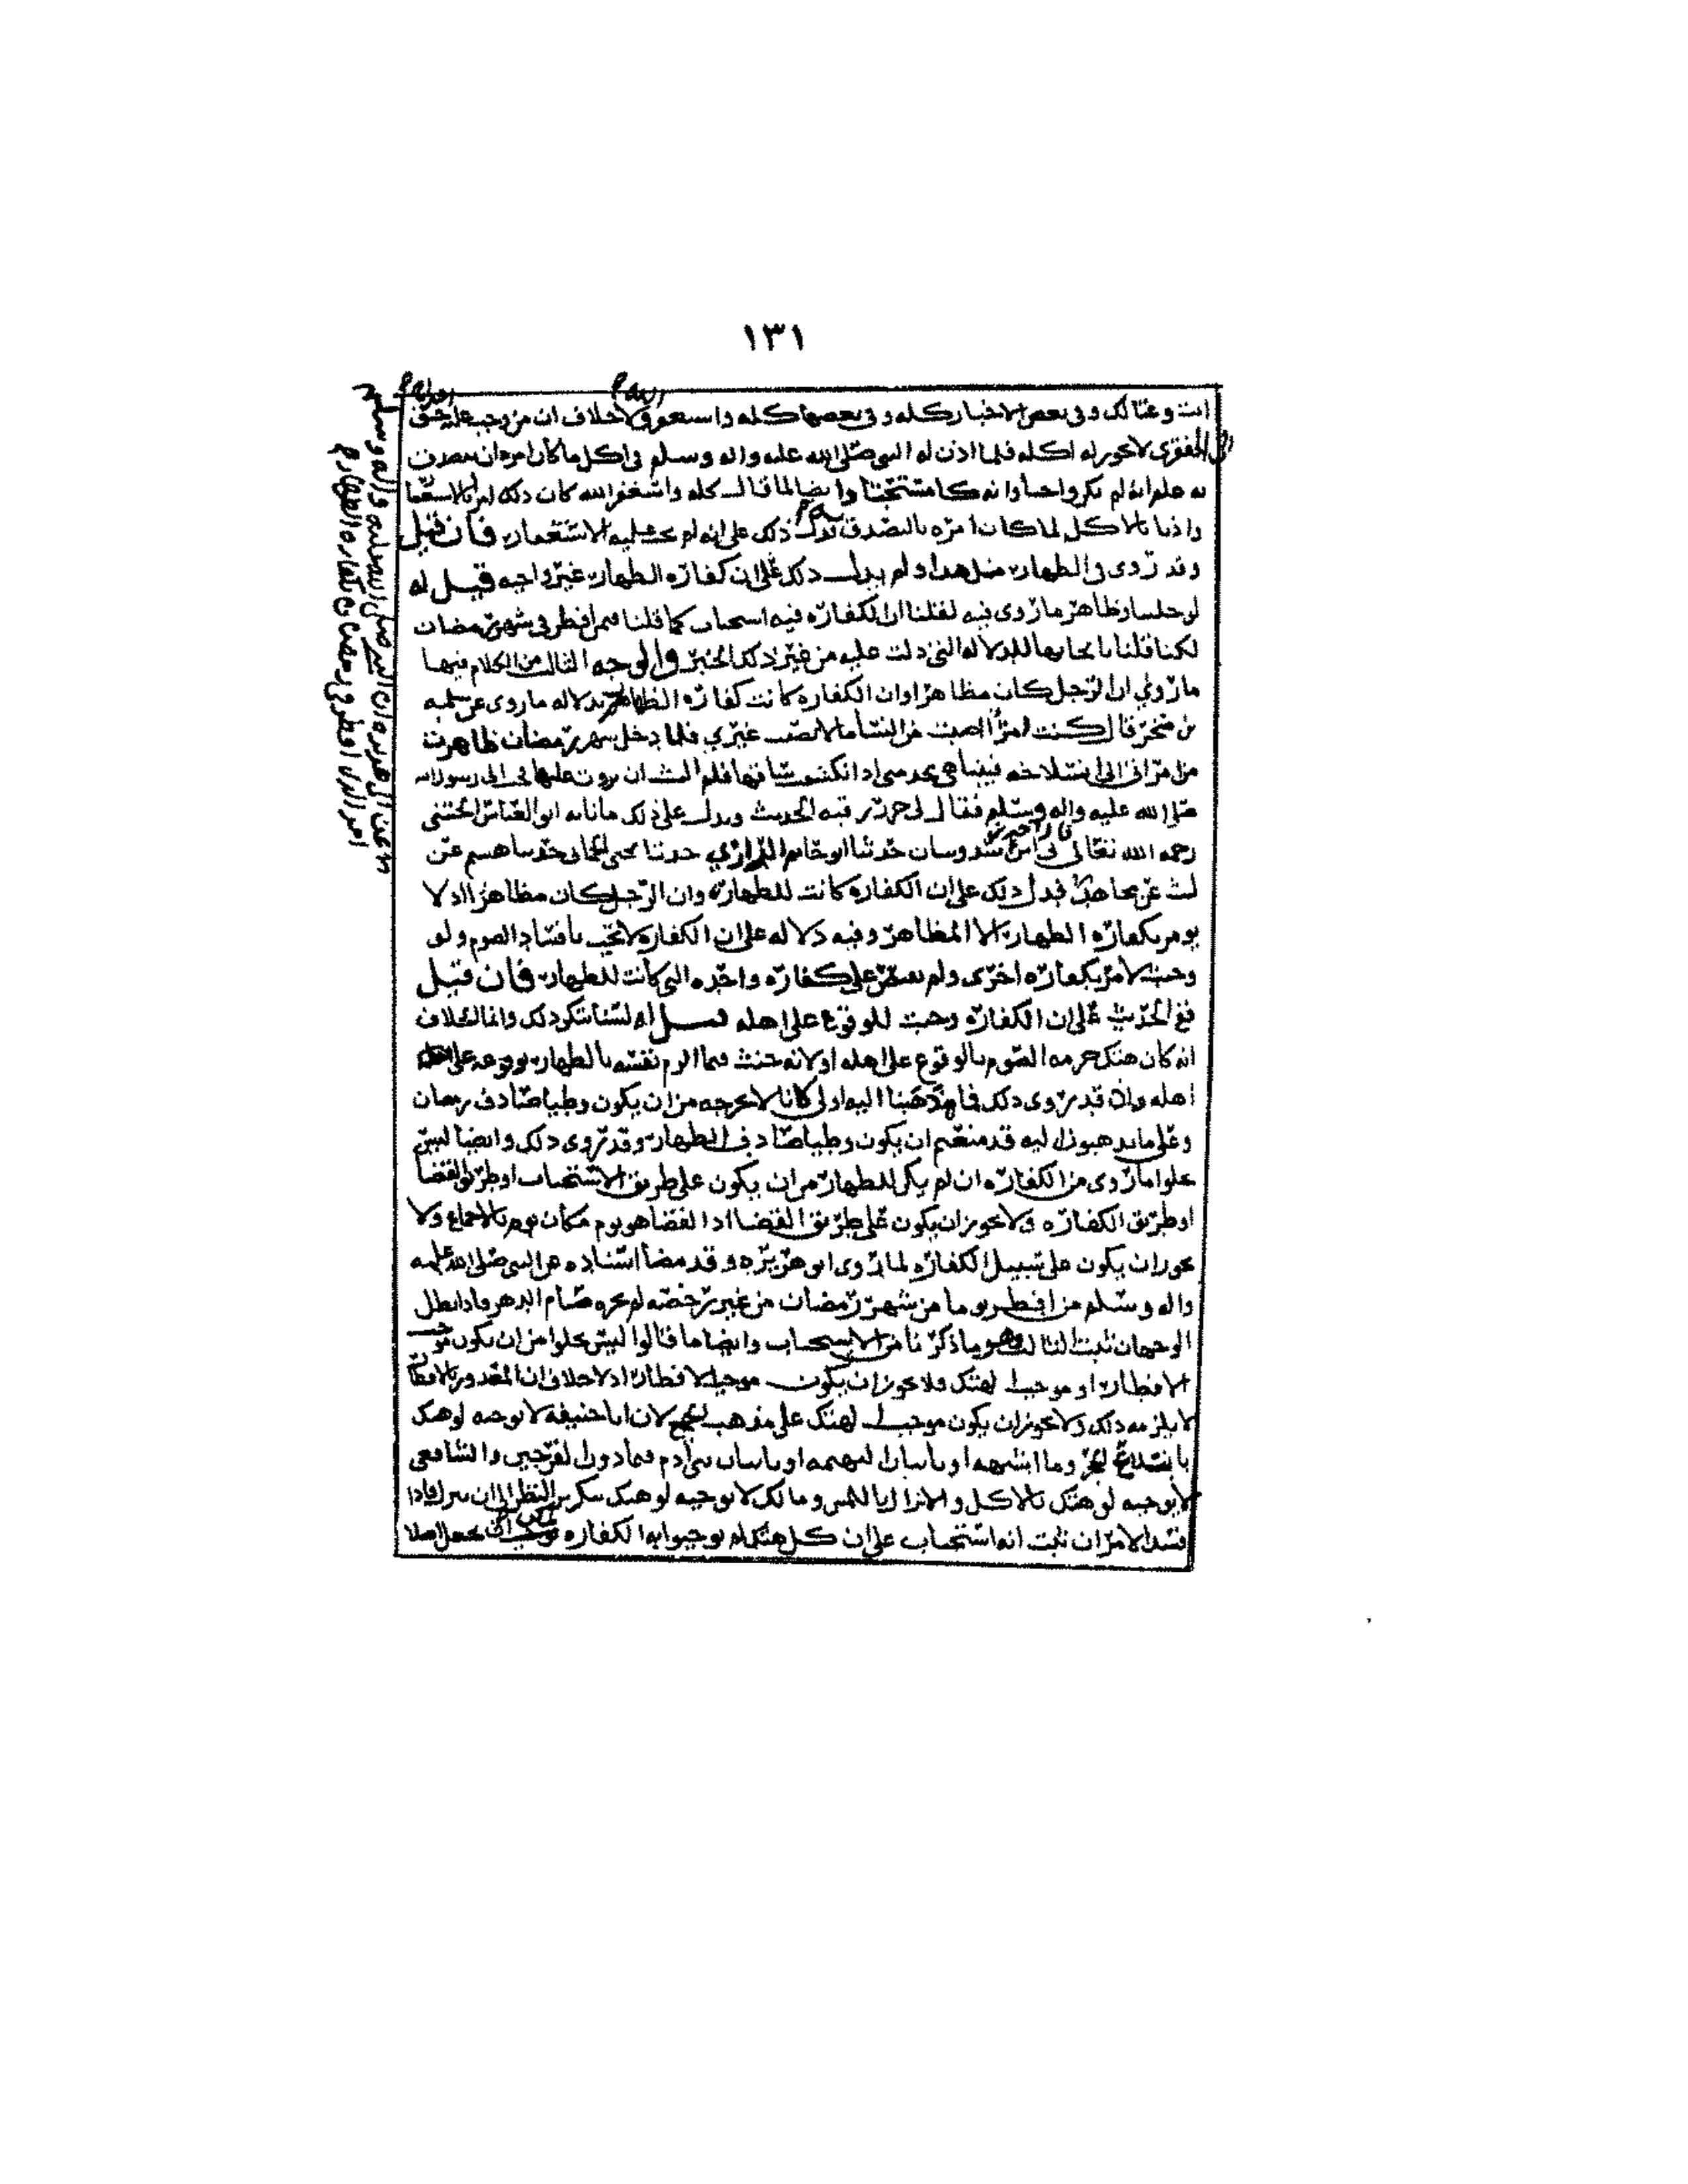 ١٣١
انت وعيالك وفي بعض الاخبار كله وفي بعضها كله واستغفر الله ولا خلاف ان من وجب عليه حق
الفقرى لا يجوز له اكله فلما اذن له النبي صلى الله عليه واله وسلم في اكل ما كان امره ان يتصدق
به علم انه لم يكن واجبا وانه كان مستحبا وايضا لما قال كله واستغفر الله كان ذلك امرا بالاستغفار
واذنا بالاكل لما كان امره بالتصدق به فدل ذلك على انه لم يجب عليه الا الاستغفار فان قيل
وقد روي في الظهار مثل هذا ولم يدل ذلك على ان كفارة الظهار غير واجبه قيل له
لو خلينا وظاهر ما روي فيه لقلنا ان الكفاره فيه استحباب كما قلنا فيمن افطر في شهر رمضان
لكنا قلنا بايجابها للدلاله التي دلت عليه من غير ذلك الخبر والوجه الثالث من الكلام فيها
ما روي ان الرجل كان مظاهرا وان الكفاره كانت كفاره الظهار بدلاله ما روي عن سلمه
بن صخر قال كنت امرأ اصيب من النسا ما لا يصيب غيري فلما دخل شهر رمضان ظاهرت
من امراتي الى انسلاخه فبينا هي تخدمني اذ انكشف ساقها فلم البث ان نزوت عليها الى رسول الله
صلى الله عليه واله وسلم فقال لي حرر رقبه الحديث ويدل على ذلك ما انا به ابو العباس الحسني
رحمه الله تعالى قال اخبرنا ابن سدوسان حدثنا ابو حاتم الرازي حدثنا يحيى الحماني حدثنا هشيم عن
ليث عن مجاهد فدل ذلك على ان الكفاره كانت للظهار وان الرجل كان مظاهرا اذ لا
يومر بكفاره الظهار الا المظاهر وفيه دلاله على ان الكفاره لا تجب بافساد الصوم ولو
وجبت لامر بكفاره اخرى ولم يقتصر على كفاره واحده التي كانت للظهار فان قيل
ففي الحديث على ان الكفاره وجبت للوقوع على اهله قيل له لسنا ننكر ذلك وانما الخلاف
انه كان هتك حرمه الصوم بالوقوع على اهله او لانه حنث فيما الزم نفسه بالظهار بوقوعه على
اهله وان قد روي ذلك فما ذهبنا اليه اولى كان لا يخرجه من ان يكون وطيا صادف رمضان
وعلى ما يذهبون اليه قد منعتم ان يكون وطيا صادف الظهار وقد روي ذلك وايضا ليس
يخلوا ما روي من الكفاره ان لم يكن للظهار من ان يكون على طريق الاستحباب او طريق القضا
او طريق الكفاره ولا يجوز ان يكون على طريق القضا اذ القضا هو يوم مكان يوم بالاجماع ولا
يجوز ان يكون على سبيل الكفاره لما روي ابو هريره وقد مضا اسناده عن النبي صلى الله عليه
واله وسلم من افطر يوما من شهر رمضان من غير رخصه لم يجزه صيام الدهر واذا بطل
الوجهان ثبت الثالث وهو ما ذكرنا من الاستحباب وايضا ما قالوا ليس يخلوا من ان يكون موجب
الافطار او موجب الهتك ولا يجوز ان يكون موجب الافطار اذ لا خلاف ان المعذور بالافطار
لا يلزمه ذلك ولا يجوز ان يكون موجب الهتك على مذهب الجميع لان ابا حنيفة لا يوجبه لو هتك
بابتلاع الحجر وما اشبهه او باتيان البهيمه او باتيان بني ادم فيما دون الفرجين والشافعي
لا يوجبه لو هتك بالاكل والانزال باللمس ومالك لا يوجبه لو هتك بتكرير النظر الى ان ينزل فاذا
فسد الامران ثبت انه استحباب على ان كل هتك لم يوجبوا به الكفاره يمكن ان يجعل اصلا
عن ابي هريره ان النبي صلى الله عليه واله وسلم
امر الذي افطر في رمضان بكفاره الظهار